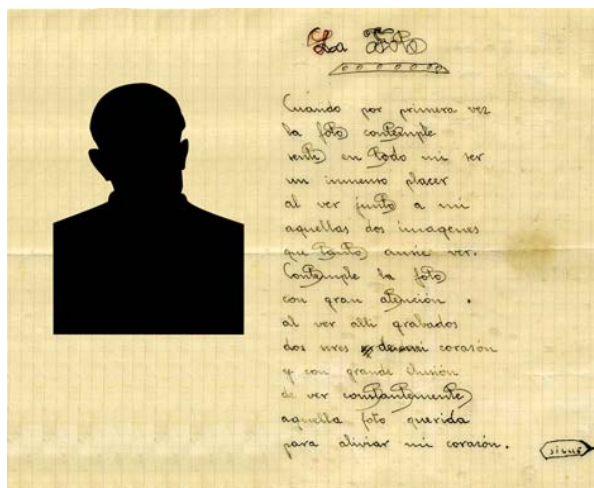 La
Cuándo por primera vez
la foto contemple
senti en todo mi ser
un inmenso placer
al ver junto a mi
aquellas dos imagenes
que tanto ansie ver.
Contemple la foto
con gran atención.
al ver alli grabados
dos seres de mi corazón
y con grande ilusión
de ver constantemente
aquella foto querida
para aliviar mi corazón.
sigue